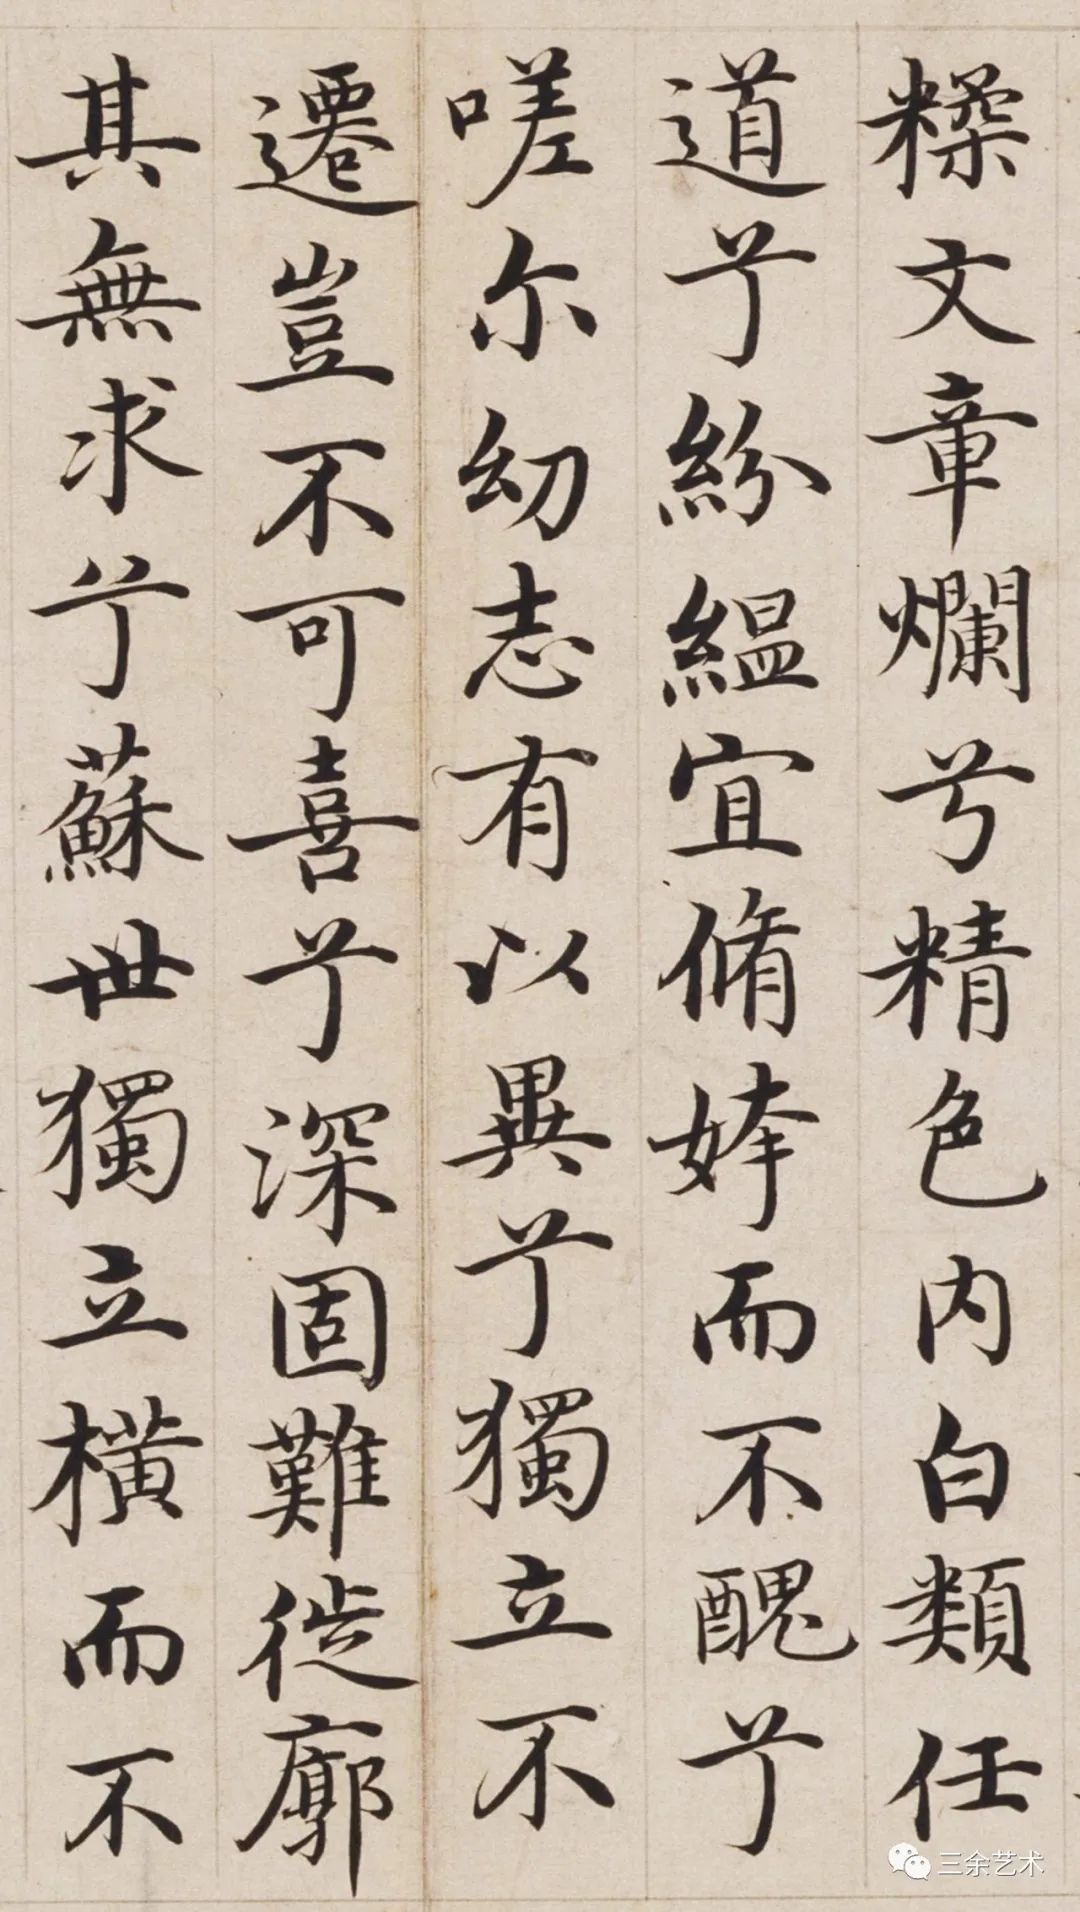 糅文章爛兮精色内白類任
道兮紛緼宜脩姱而不醜兮
嗟尔幼志有以異兮獨立不
遷豈不可喜兮深固難徙廓
其無求兮蘇世獨立橫而不
三余艺术